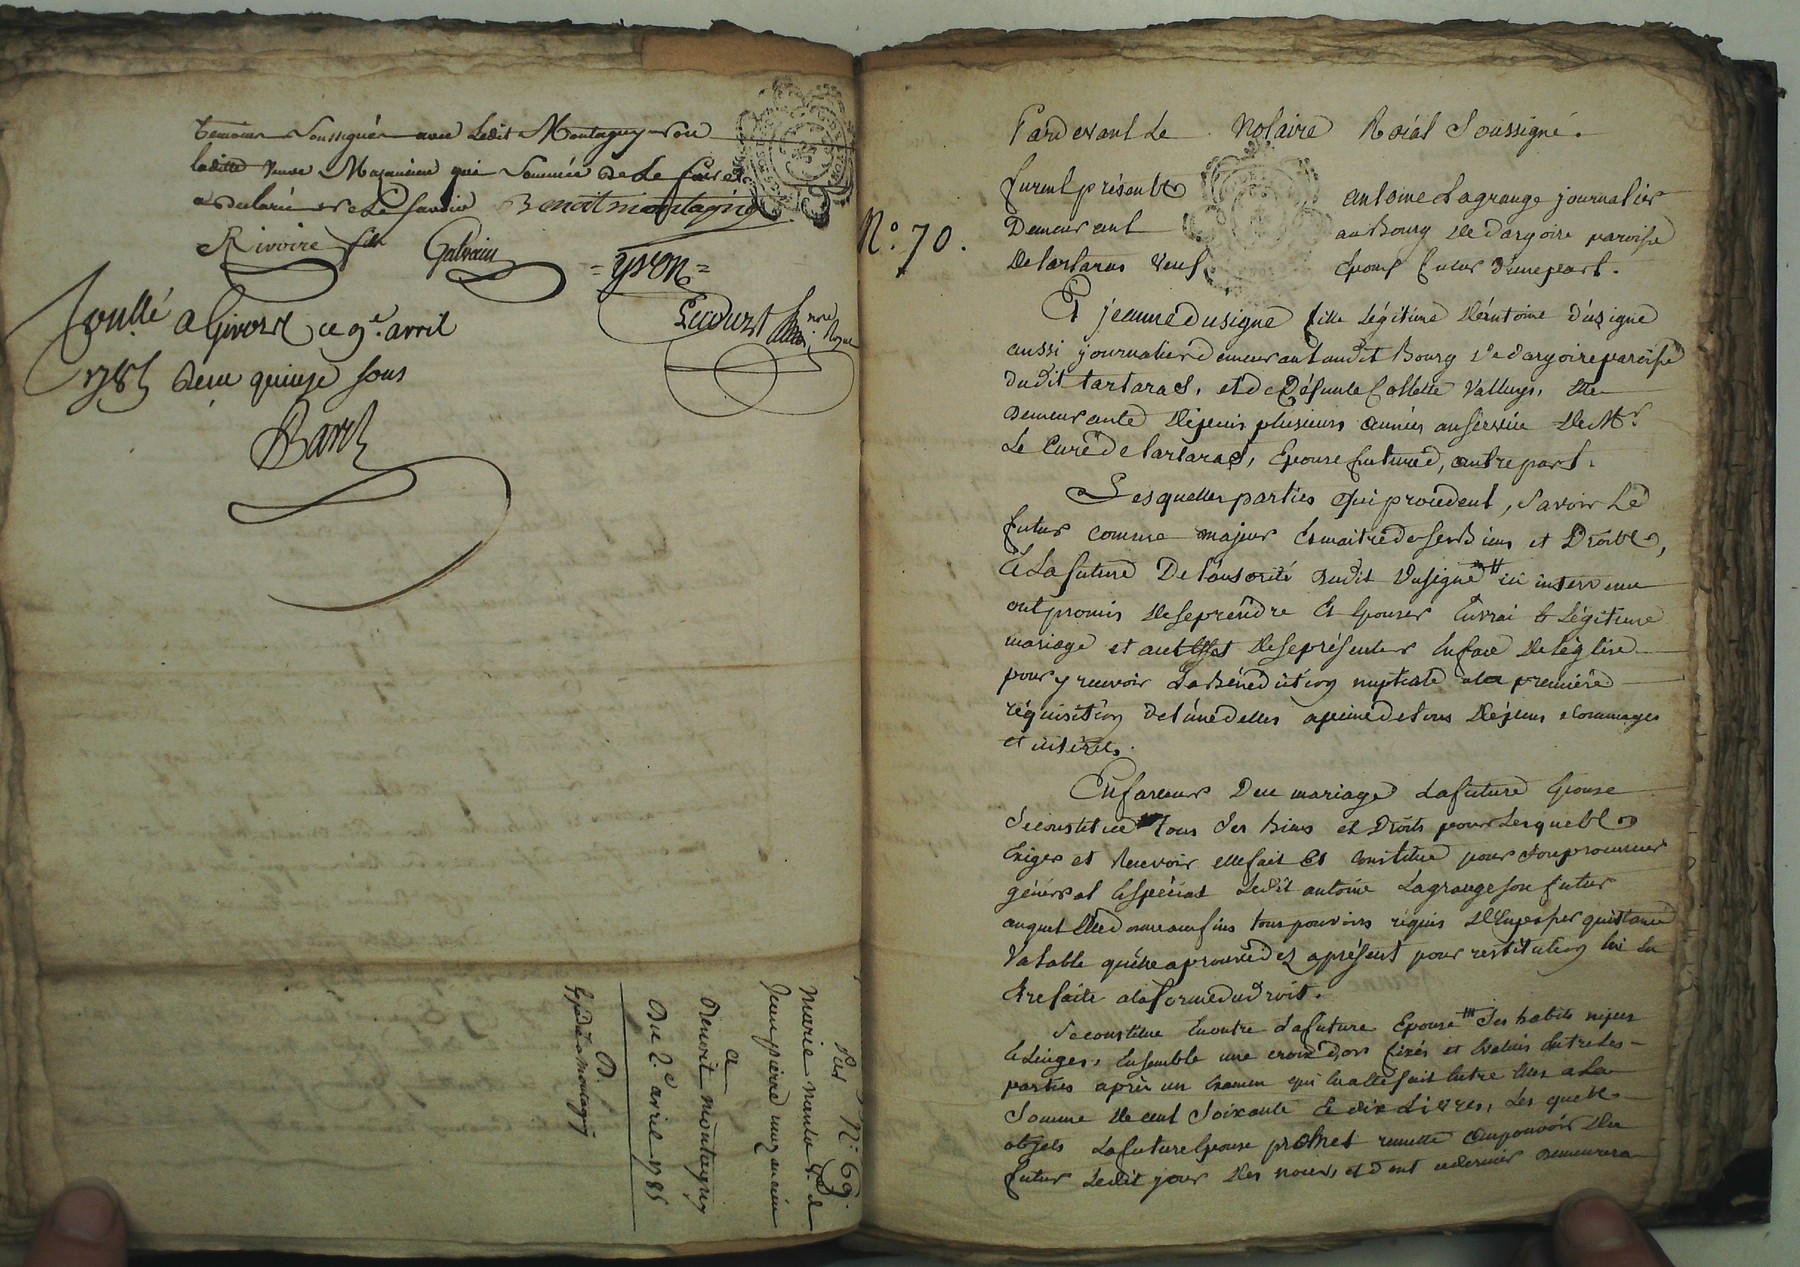 témoins soussignés avec Ledit Montagny non
laditte veuve Mazancieu qui sommée de Le faire
a declaré ne Le savoir Benoit montagny
Rivoire fils Galvain = yvon =
Lecourt nore Royal
Conllé a Givors ce 9e. avril
1785 Reçu quinze sous
Barel
Du N: 69.
marie nantas Ve. de
Jean pierre mazancieu
a
Benoit montagny
Du 2e avril 1785
D.
Expédié a montagny
Pardevant Le Notaire Roïal Soussigné.
furent présents antoine Lagrange journalier
N°. 70.
Demeurant au Bourg de dargoire paroisse
de tartaras veuf Epoux futur d'une part.
Et jeanne dusigne fille Légitime d'éantoine dusigne
aussi journalier demeurant audit Bourg de dargoire paroisse
dudit tartaras, et de Défunte Collette Valluys, elle
demeurante depuis plusieurs années au service de Mr.
Le Curé de tartaras, Epouse future d'autre part.
Lesquelles parties qui procedent, savoir Le
futur comme majeur Et maitre de ses Biens et Droits,
Et La future De l'autorité dudit Dusigne # ici intervenu
ont promis de se prendre Et Epouser En vrai & Légitime
mariage et aut Effet de se présenter En face de l'église
pour y recevoir La Bénédiction nuptiale ala premiére
réquisition de l'une d'elles apeine de tous dépens dommages
et intérets.
En faveur Dece mariage La future Epouse
Se constitue tous Ses biens et Droits pour Lesquels
Exiger et Recevoir elle fait Et constitue pour son procureur
général Et spécial Ledit antoine Lagrange son futur
auquel elle donne aux fins tous pouvoirs réquis d'En passer quittance
Valable qu'elle aprouve dez aprésent pour restitution lui En
être faite ala forme du Droit.
Se constitue En outre La future Epouse # Ses habits nipes
Et Linges, Ensemble une croix d'or fixés et Evalués Entre Les
parties après un Examen qui En a été fait Entre Elles a La
Somme de cent Soixante Et dix Livres, Les quels
objets La future Epouse promet remettre au pouvoir du
futur Ledit jour des noces, et dont ce dernier demeurera